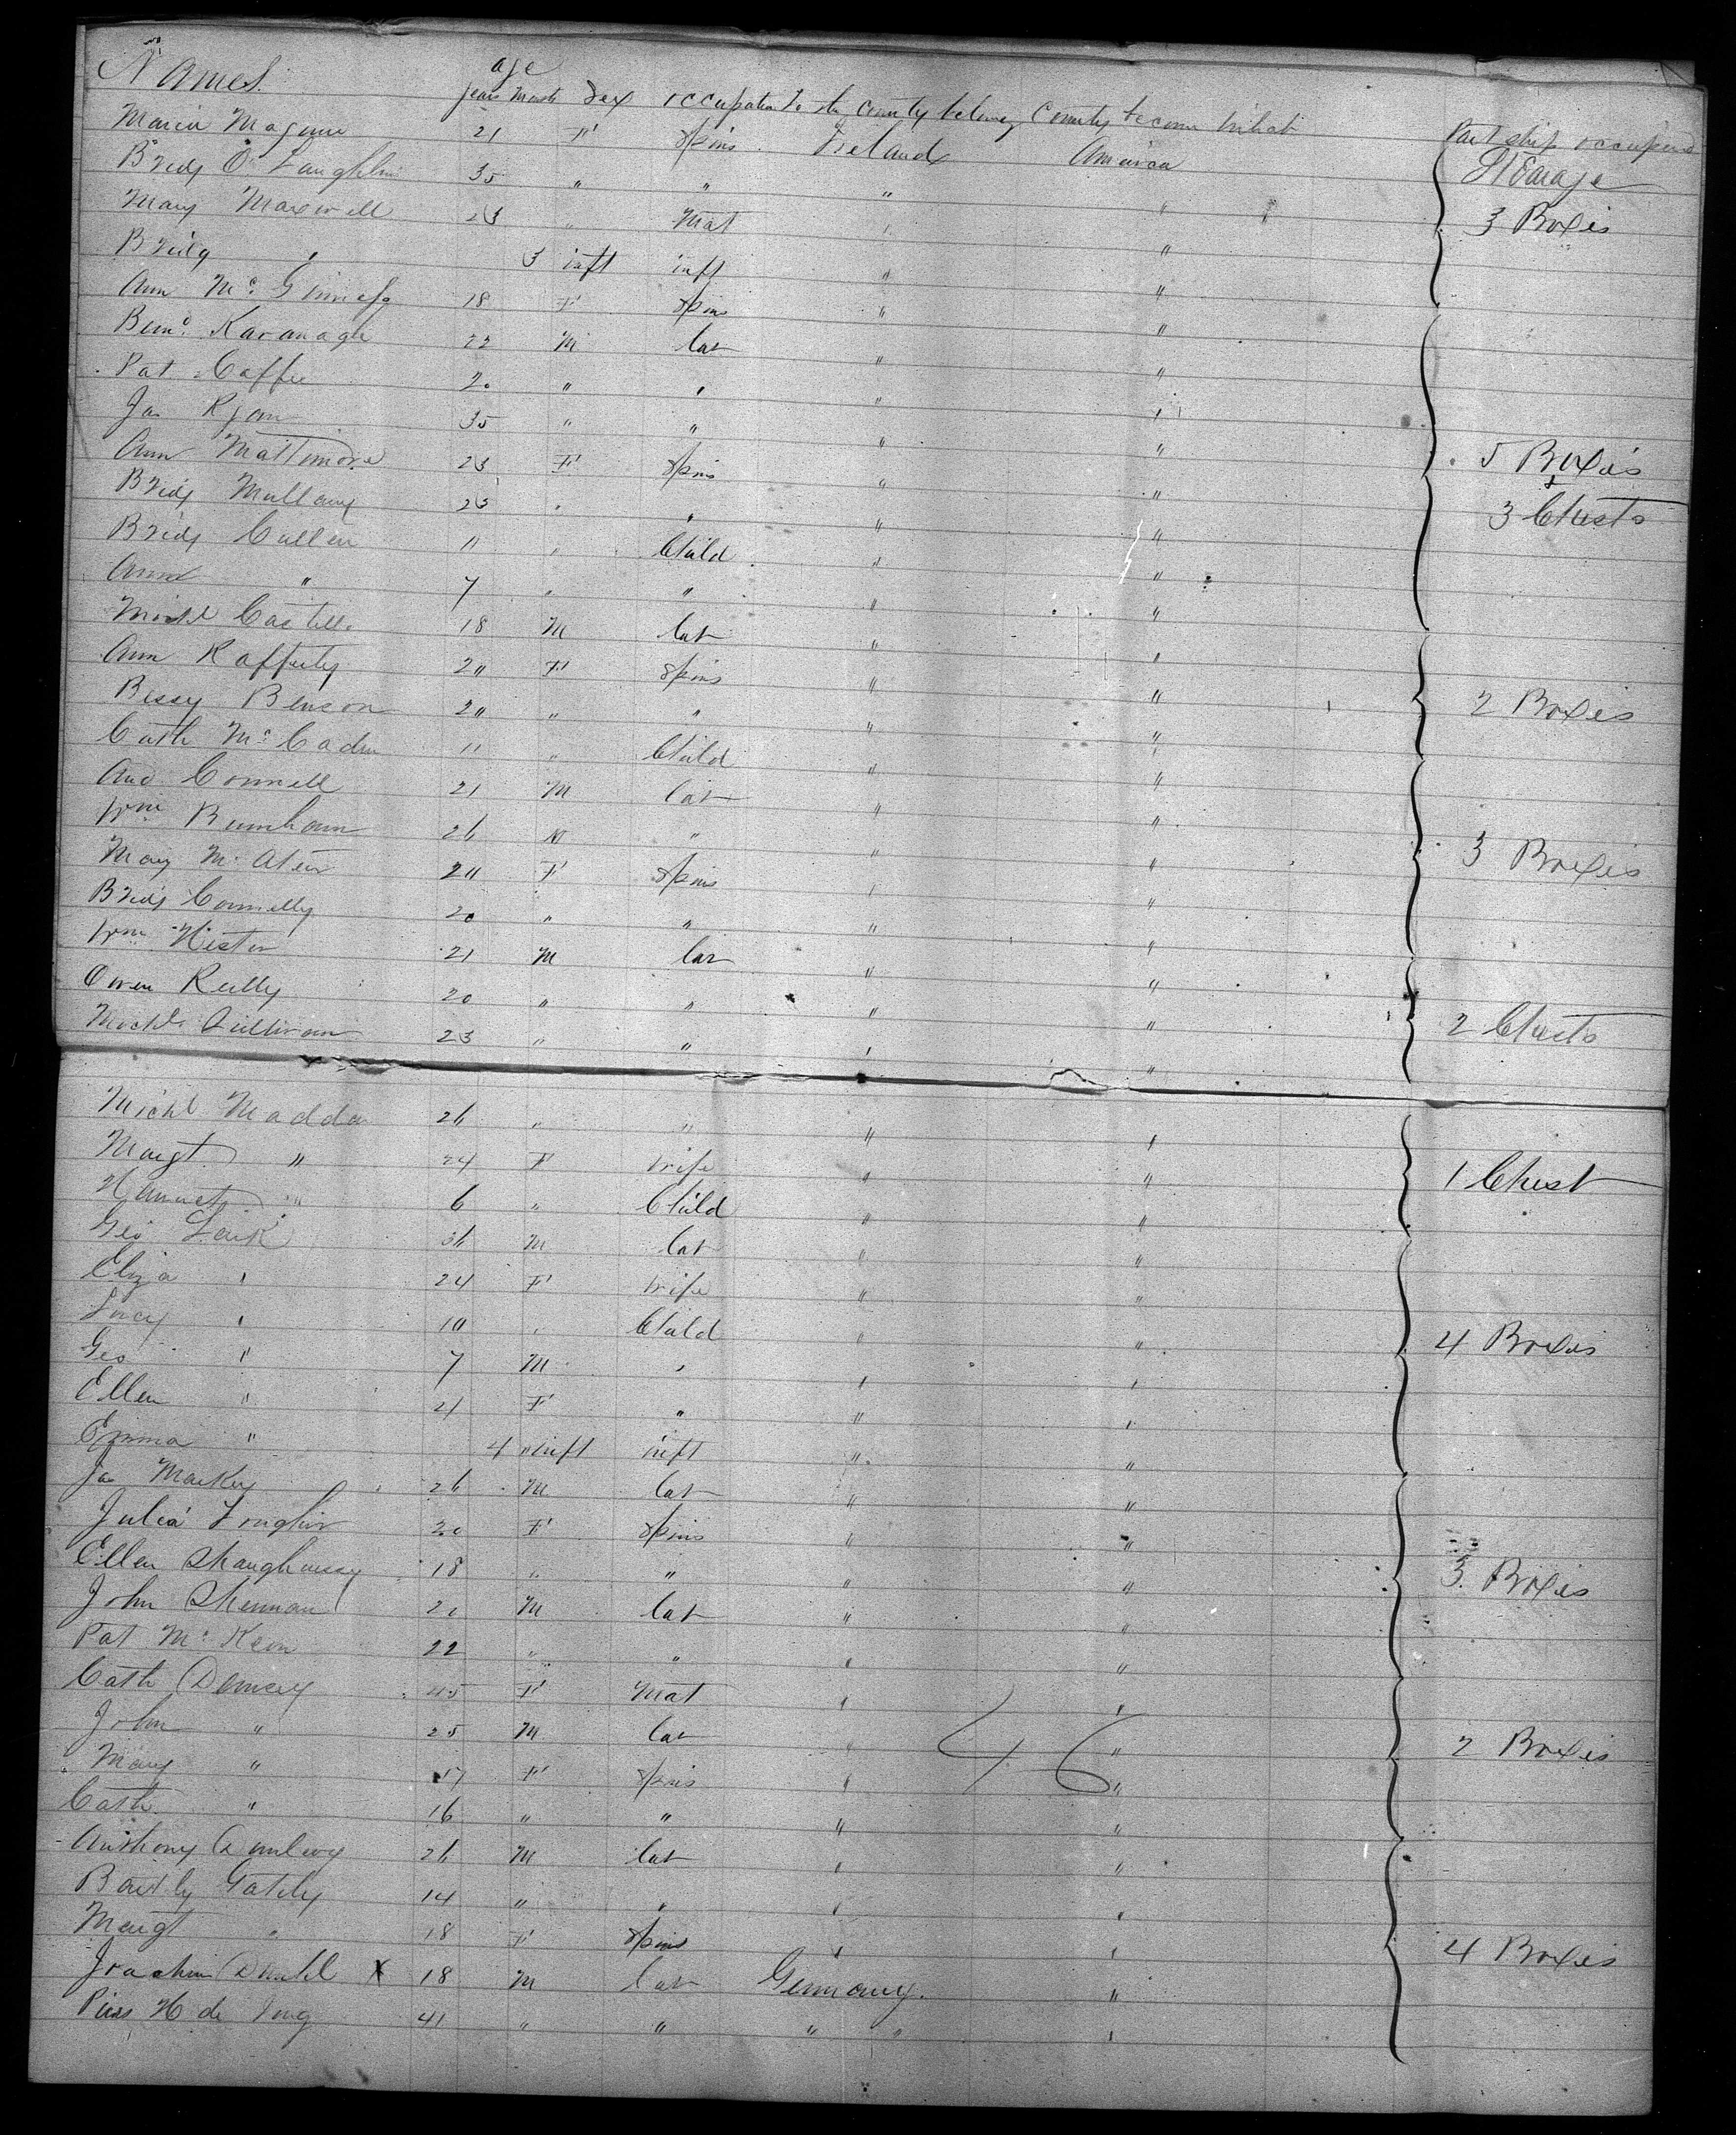 Names. age
years Month Sex occupation To the County belong County become Inhabt Part ship occupied
Maria Maguire 21 F Spins Ireland America Steerage
Bridg O. Laughlin 35 " " " "
Mary Maxwell 23 " Mat " " 3 Boxes
Bridg " 3 inft inft " "
Ann Mc. Ginness 18 F Spins " "
Bernd. Kavanagh 22 M lab " "
Pat Caffee 20 " " " "
Jas Ryan 35 " " " " 5 Boxes
Ann Mattimore 23 F Spins " " &
Bridg Mullany 23 " " " " 3 Chests
Bridg Cullen 11 " Child " "
Ann " 7 " " " "
Michl Castello 18 M lab " "
Ann Rafferty 20 F Spins " "
Bessy Benson 20 " " " " 2 Boxes
Cath Mc. 11 " Child " "
And Connell 21 M lab " "
Wm 26 " " " "
Mary Mc. 20 F Spins " " 3 Boxes
Bridg Connelly 20 " " " "
Wm Hester 21 M lab " "
Owen Reilly 20 " " " "
Michl Sullivan 23 " " " " 2 Chests
Michl Madden 26 " " " "
Margt " 24 F wife " " 1 Chest
" 6 " Child " "
Geo 36 M lab " "
Eliza " 24 F wife " "
Lucy " 10 " Child " " 4 Boxes
Geo " 7 M " " "
Ellen " 4 F " " "
Emma " 4 " inft inft " "
Jas Markey 26 M lab " "
Julia 20 F Spins " "
Ellen Shaughnessy 18 " " " " 3 Boxes
John 20 M lab " "
Pat Mc. Keon 22 " " " "
Cath Demsey 45 F Mat " "
John " 25 M lab " 46 " 2 Boxes
Mary " 17 F Spins " "
Cath " 16 " " " "
Anthony 26 M lab " "
Gately 14 " " " "
Margt " 18 F Spins " " 4 Boxes
Joachim X 18 M lab Germany. "
H de Jong 41 " " " " "